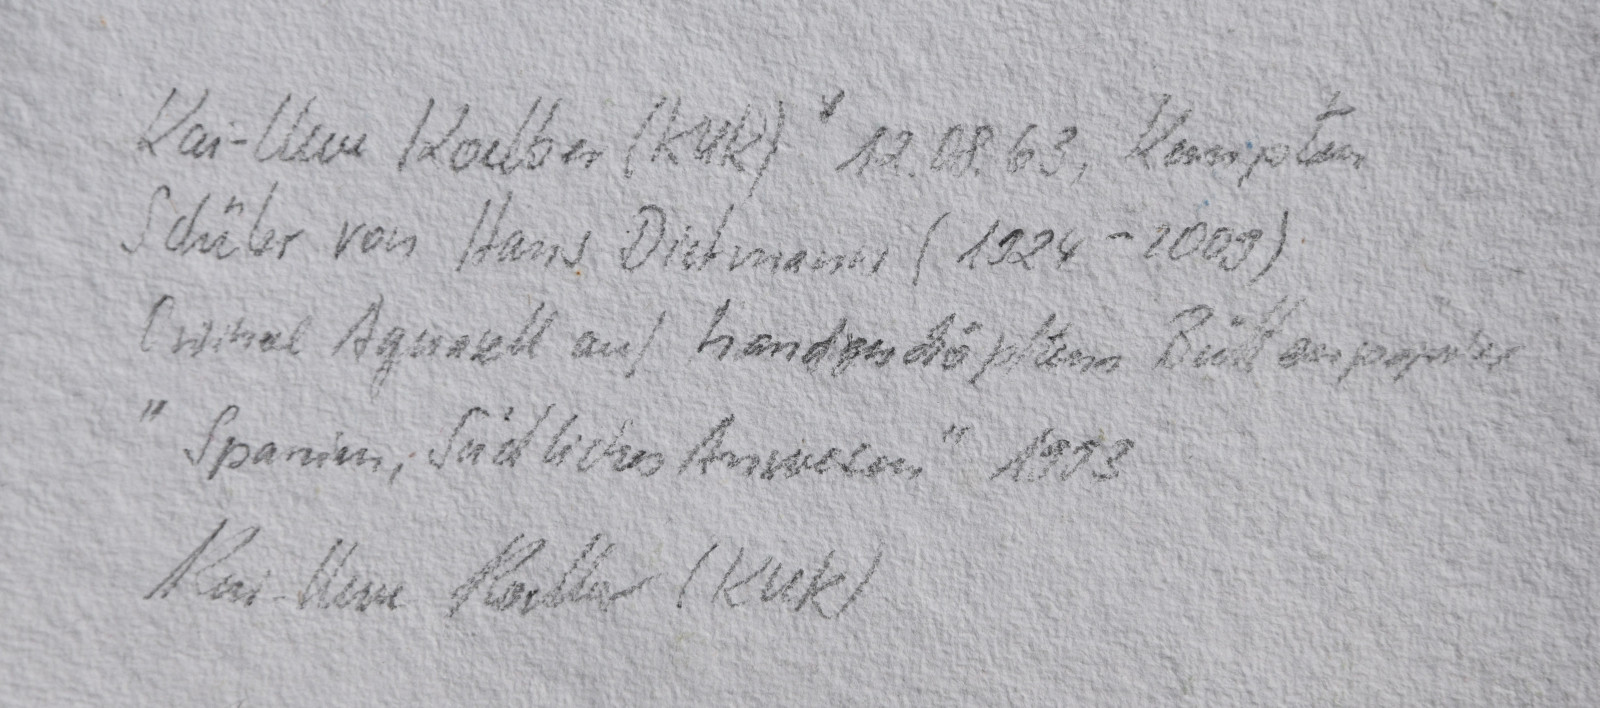 Kai-Uwe Koelber (KUK) * 12.08.63, Kempten
Schüler von Hans Dietmann (1924-2009)
Original Aquarell auf handgeschöpftem Büttenpapier
"Spanien, Südliches Anwesen" 1993
Kai-Uwe (KUK)